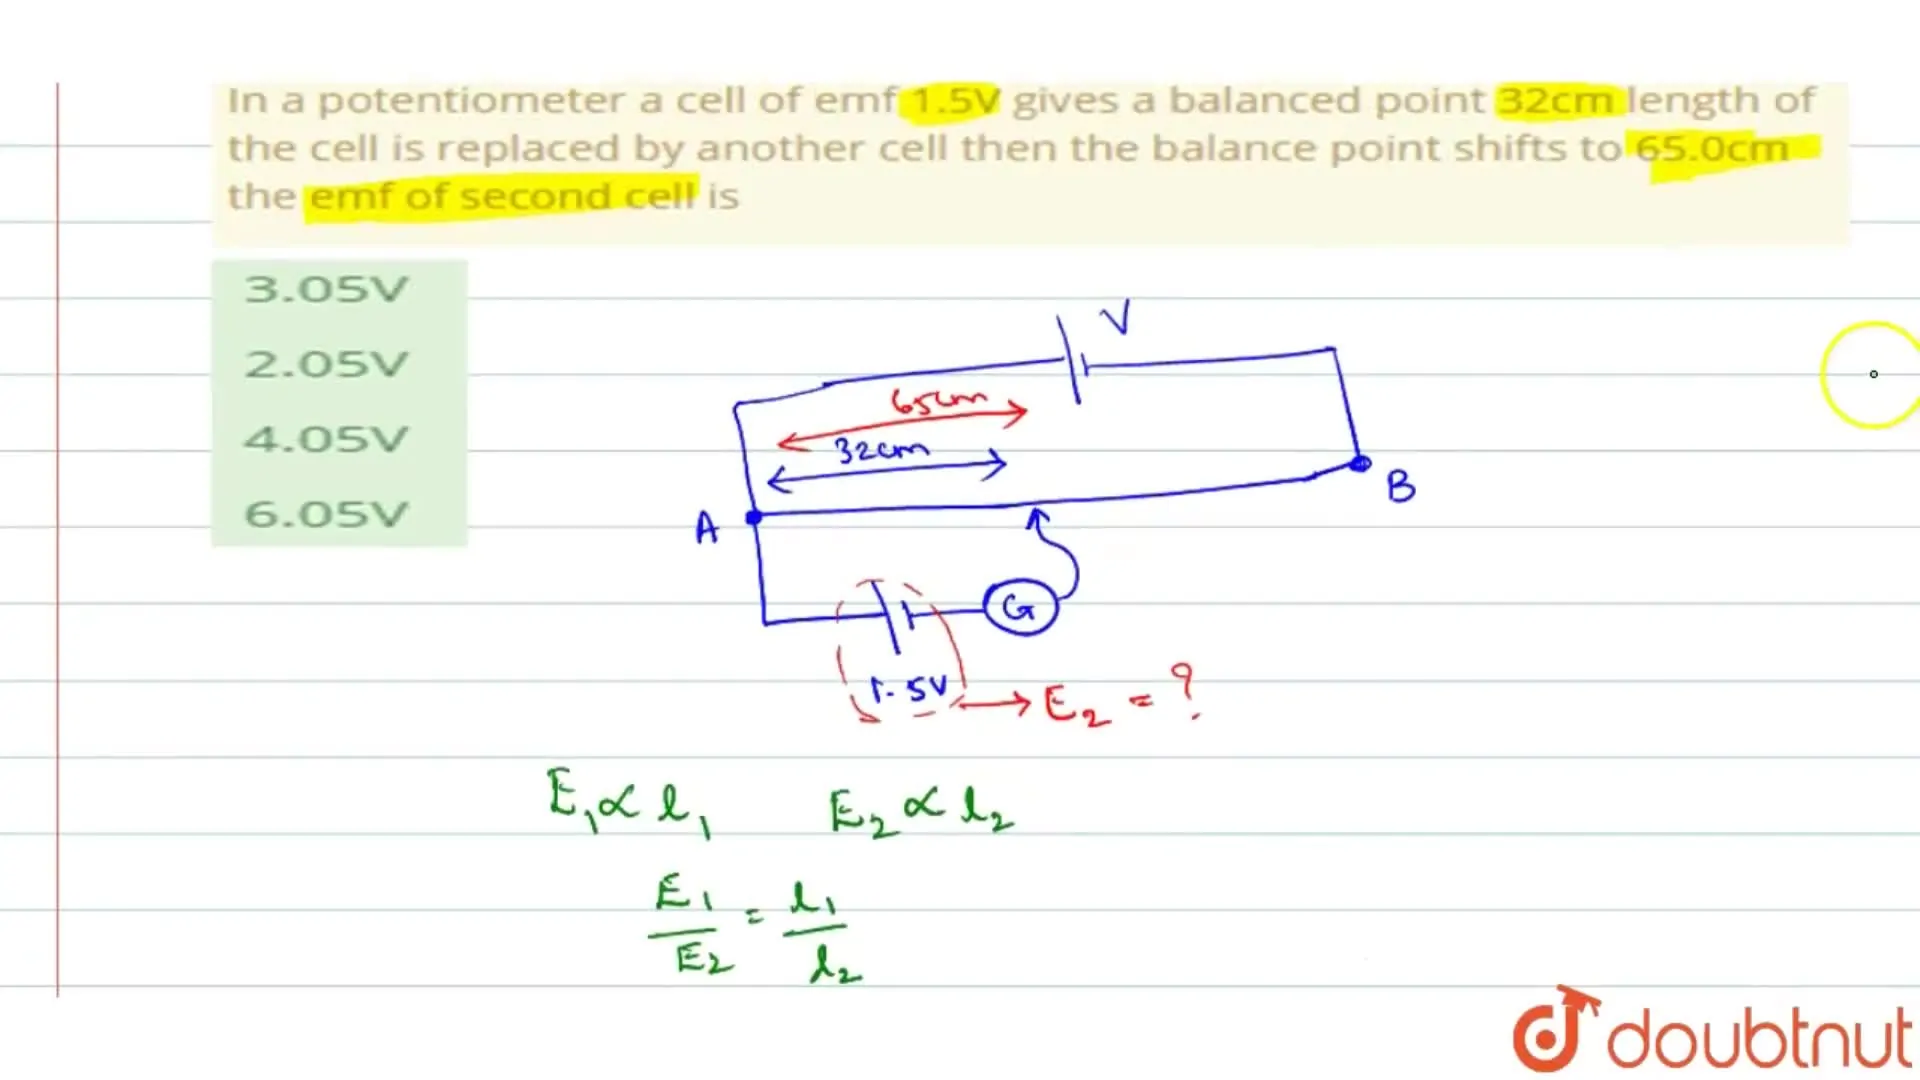 In a potentiometer a cell of emf 1.5V gives a balanced point 32cm length of
the cell is replaced by another cell then the balance point shifts to 65.0cm
the emf of second cell is
3.05V
2.05V
4.05V
6.05V
V
65cm
32cm
A
B
G
1.5V → E₂ = ?
E₁ ∝ l₁ E₂ ∝ l₂
E₁/E₂ = l₁/l₂
doubtnut